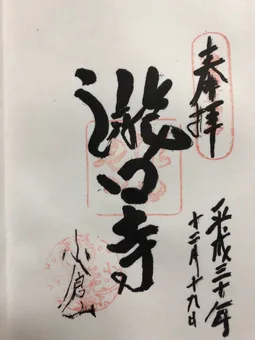 奉拝
平成三十年
十二月十九日
滝口寺
小倉山